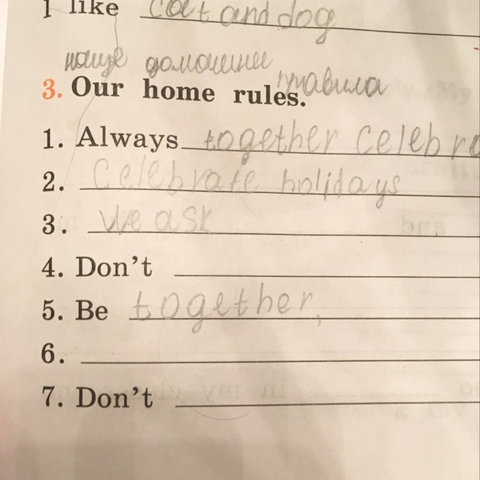 I like cat and dog
наше домашнее правила
3. Our home rules.
1. Always together celebra
2. Celebrate holidays
3. We ask
4. Don't
5. Be together,
6.
7. Don't